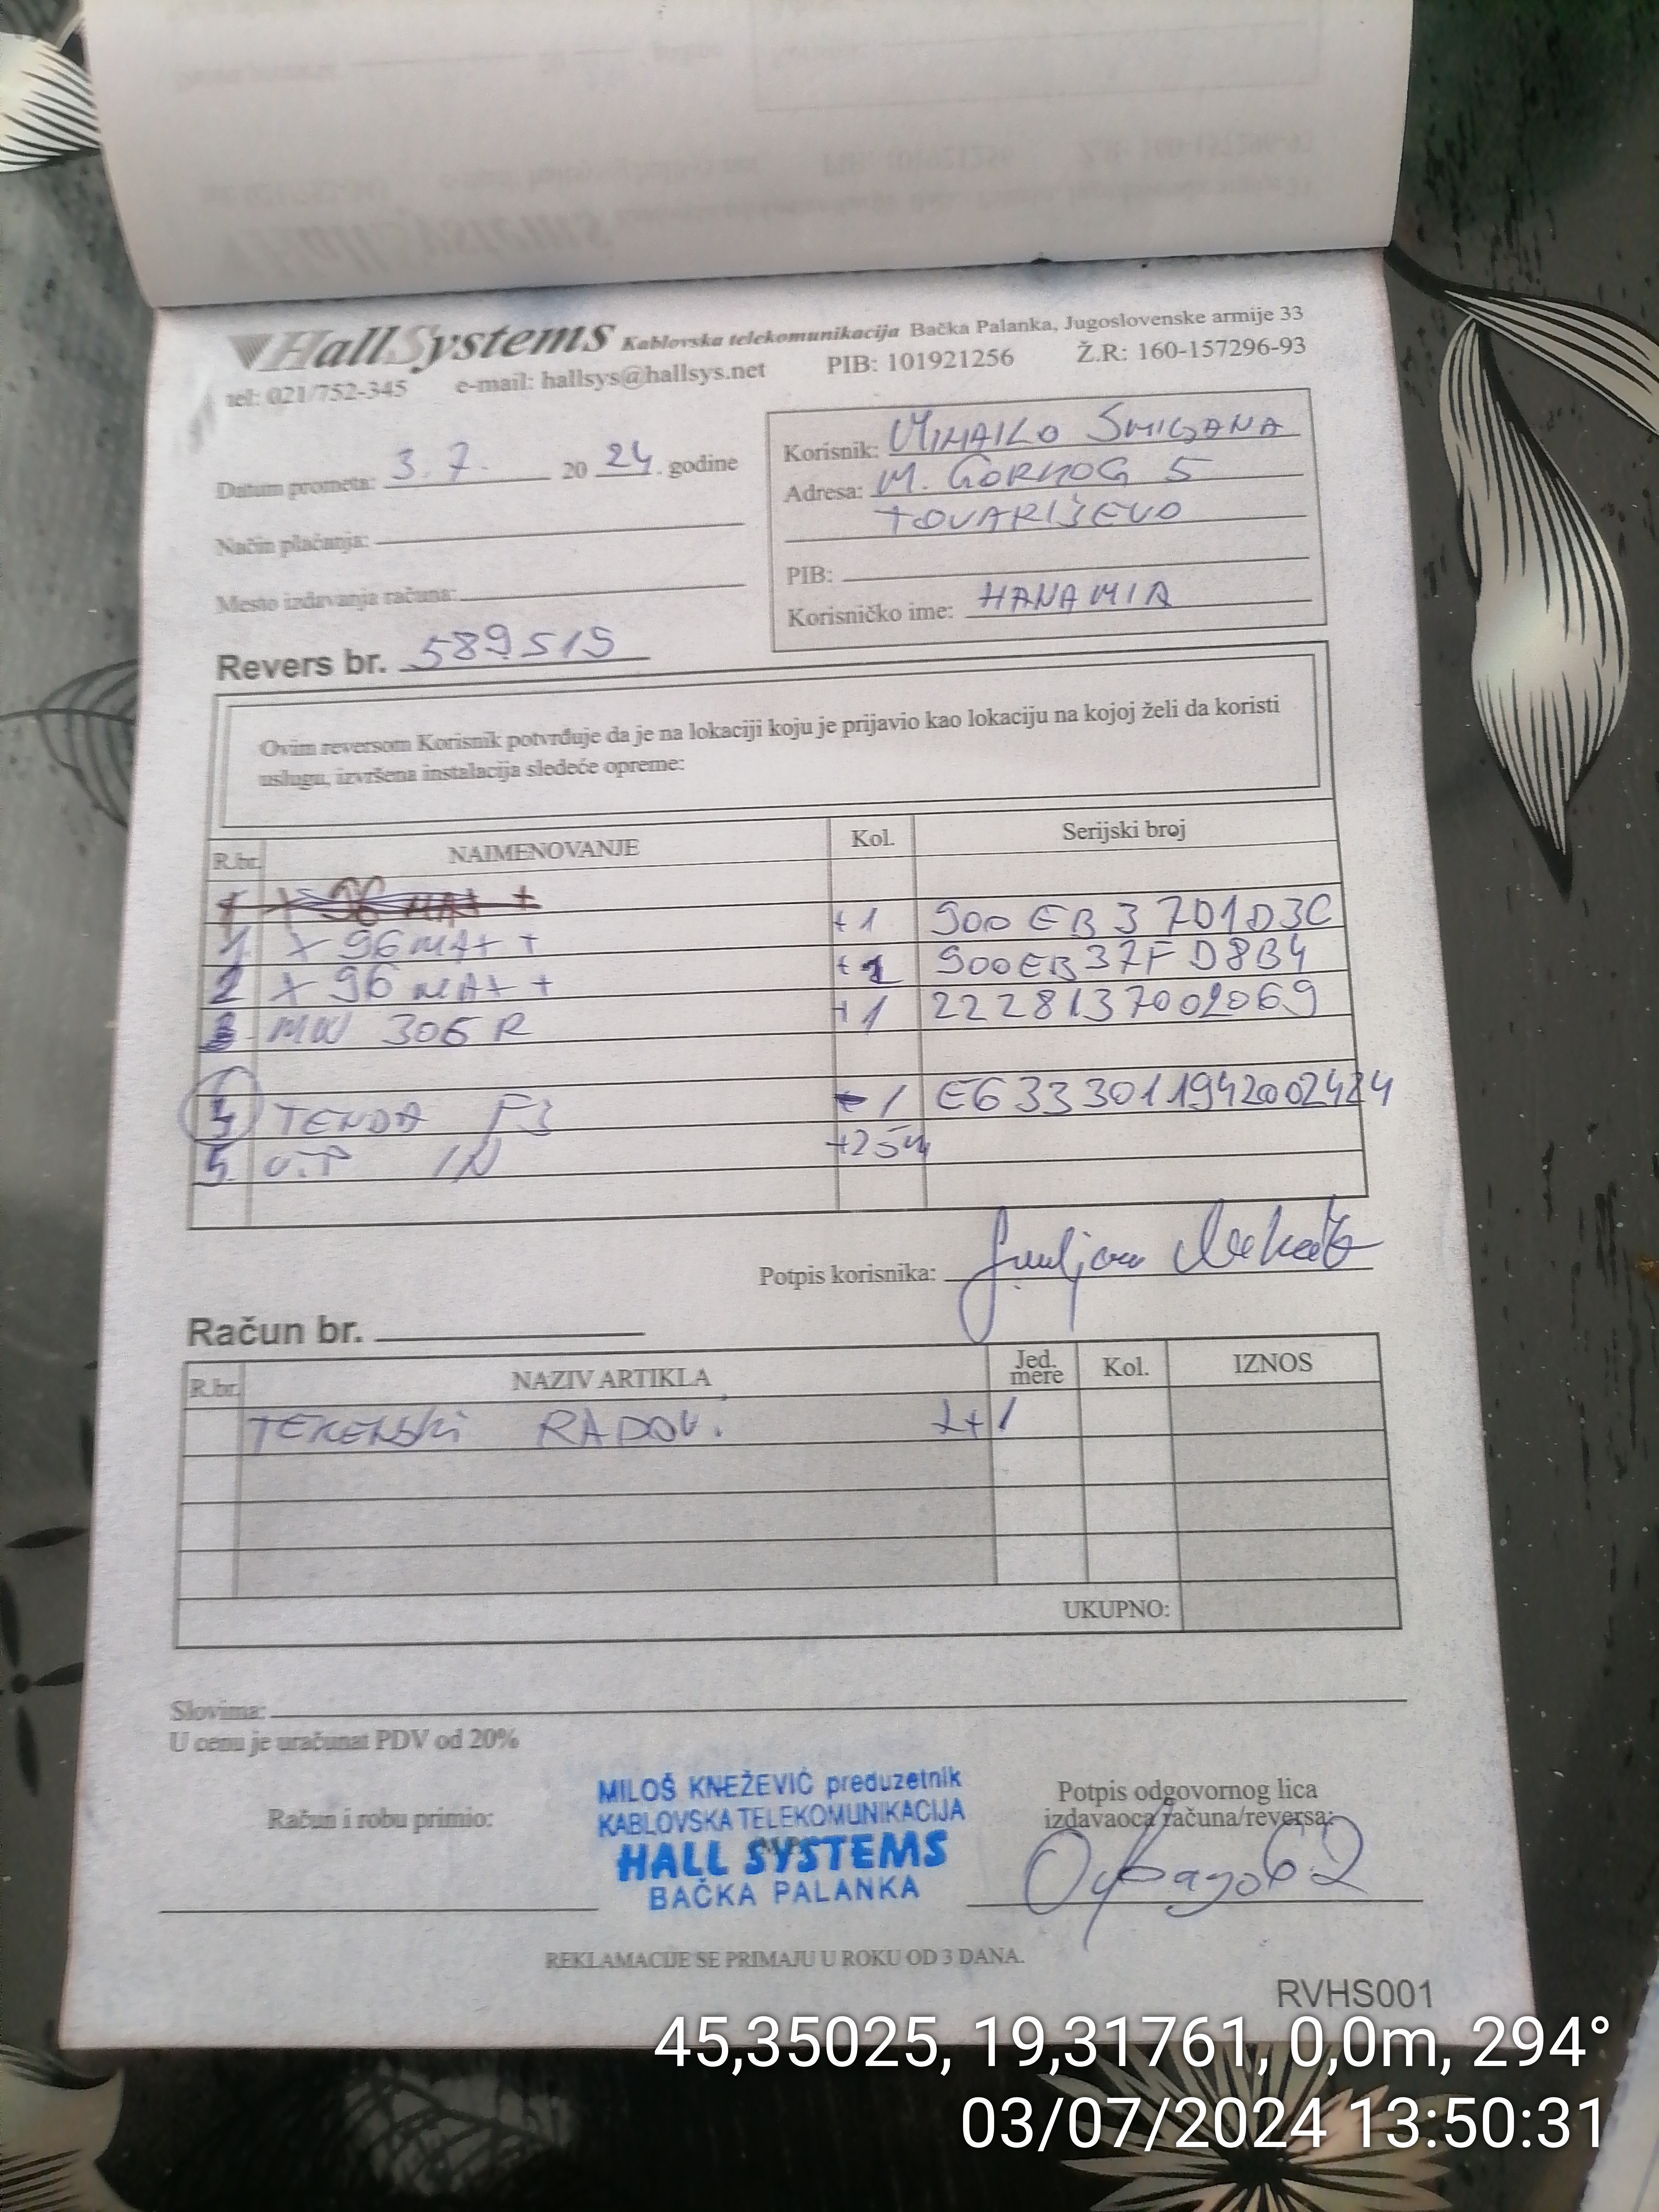 HallSystems Kablovska telekomunikacija Bačka Palanka, Jugoslovenske armije 33
tel: 021/752-345 e-mail: hallsys@hallsys.net PIB: 101921256 Ž.R: 160-157296-93
Datum prometa: 3.7. 20 24. godine
Način plaćanja:
Mesto izdavanja računa:
Revers br. 589515
Korisnik: MIHAILO
Adresa: M. GORKOG 5
TOVARIŠEVO
PIB:
Korisničko ime: HANAMIA
Ovim reversom Korisnik potvrđuje da je na lokaciji koju je prijavio kao lokaciju na kojoj želi da koristi
uslugu, izvršena instalacija sledeće opreme:
R.br. NAIMENOVANJE Kol. Serijski broj
1 X 96 MAX +
1 X 96 MAX + +1 900EB3701D3C
2 X 96 MAX + +1 900EB37FD8B4
3 MW 306 R +1 2228137002069
4 TENDA F3 -1 E6333011942002484
5 U.T.P IN +25m
Potpis korisnika:
Račun br.
R.br. NAZIV ARTIKLA Jed. mere Kol. IZNOS
RADOV. 1+1
UKUPNO:
Slovima:
U cenu je uračunat PDV od 20%
Račun i robu primio:
MILOŠ KNEŽEVIĆ preduzetnik
KABLOVSKA TELEKOMUNIKACIJA
HALL SYSTEMS
BAČKA PALANKA
Potpis odgovornog lica
izdavaoca računa/reversa:
REKLAMACIJE SE PRIMAJU U ROKU OD 3 DANA.
RVHS001
45,35025, 19,31761, 0,0m, 294°
03/07/2024 13:50:31